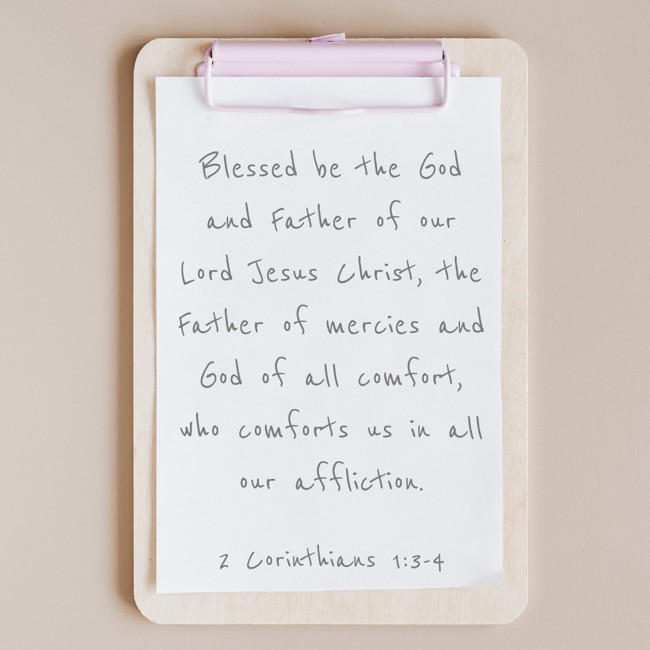 Blessed be the God
and Father of our
Lord Jesus Christ, the
Father of mercies and
God of all comfort,
who comforts us in all
our affliction.
2 Corinthians 1:3-4